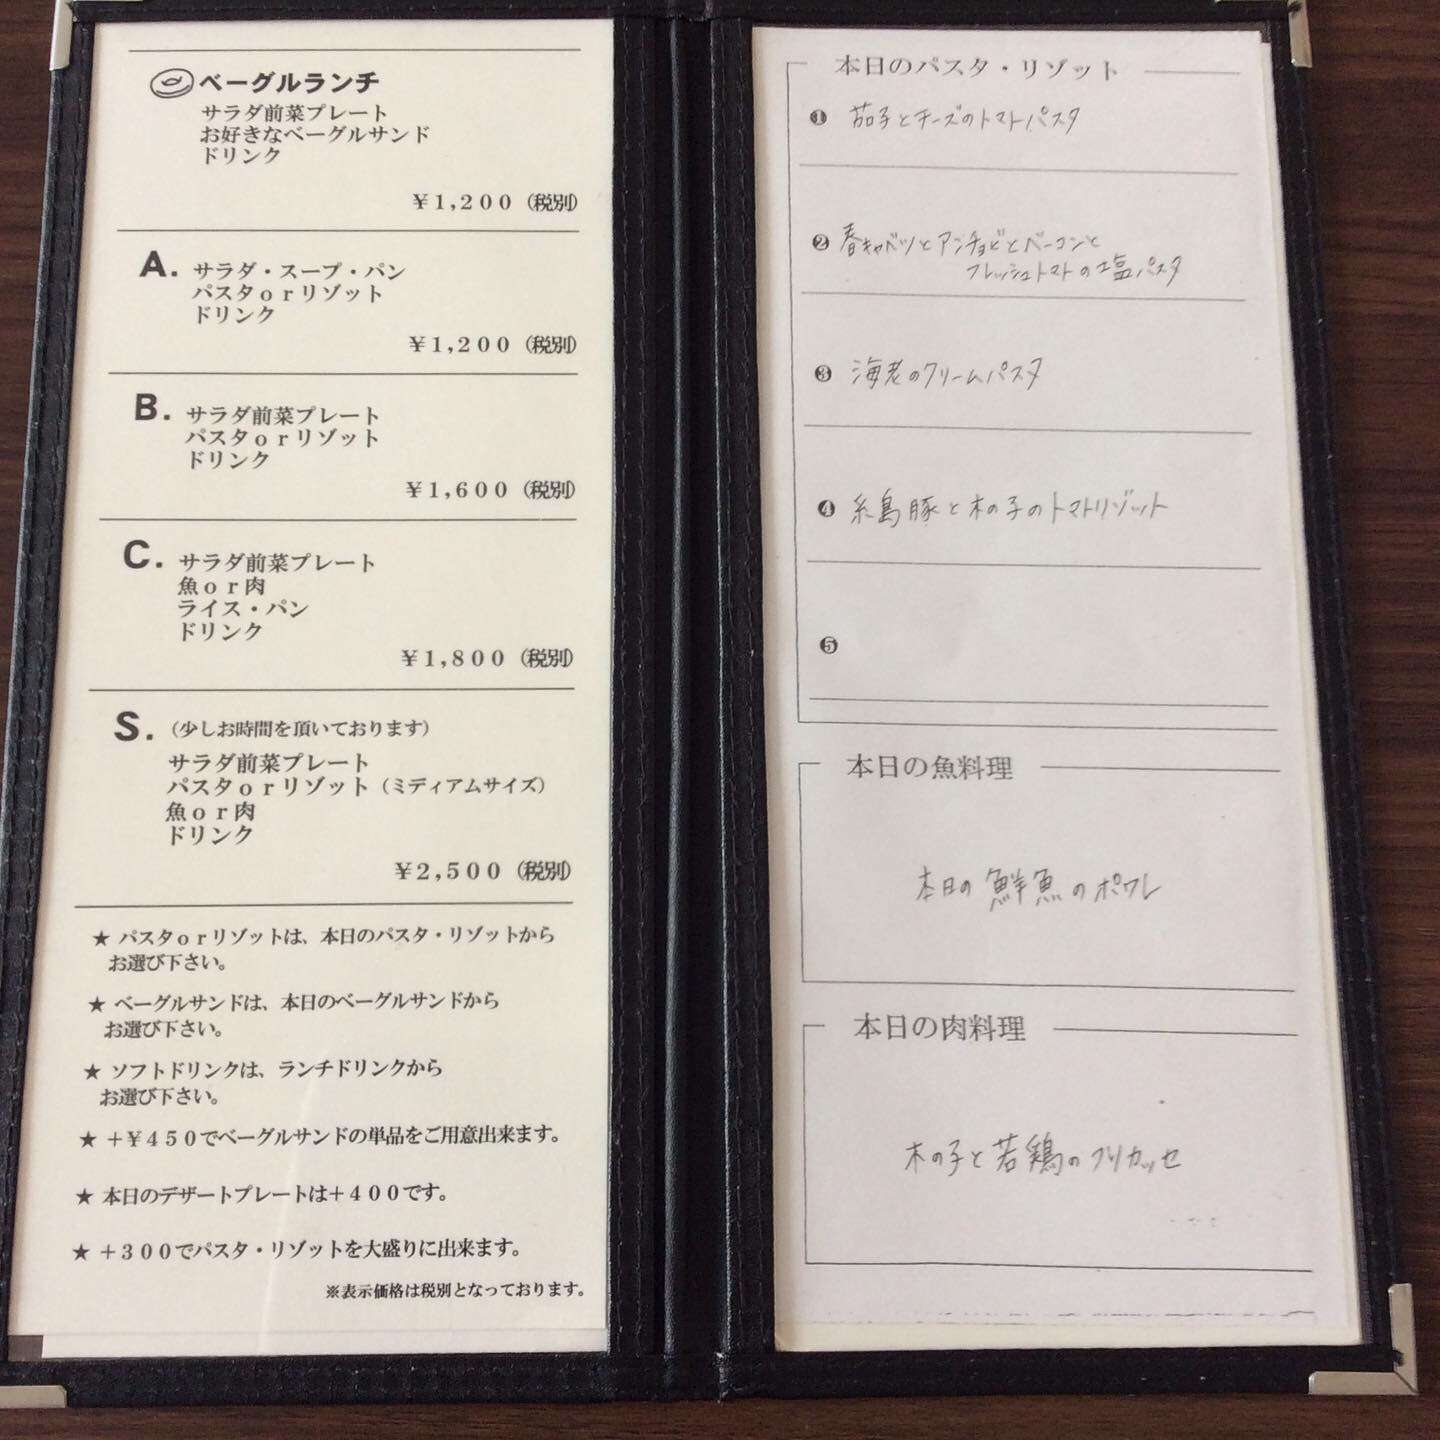 ベーグルランチ
サラダ前菜プレート
お好きなベーグルサンド
ドリンク
￥1,200（税別）
A. サラダ・スープ・パン
パスタorリゾット
ドリンク
￥1,200（税別）
B. サラダ前菜プレート
パスタorリゾット
ドリンク
￥1,600（税別）
C. サラダ前菜プレート
魚or肉
ライス・パン
ドリンク
￥1,800（税別）
S.（少しお時間を頂いております）
サラダ前菜プレート
パスタorリゾット（ミディアムサイズ）
魚or肉
ドリンク
￥2,500（税別）
★ パスタorリゾットは、本日のパスタ・リゾットから
お選び下さい。
★ ベーグルサンドは、本日のベーグルサンドから
お選び下さい。
★ ソフトドリンクは、ランチドリンクから
お選び下さい。
★ ＋￥450でベーグルサンドの単品をご用意出来ます。
★ 本日のデザートプレートは＋400です。
★ ＋300でパスタ・リゾットを大盛りに出来ます。
※表示価格は税別となっております。
本日のパスタ・リゾット
❶ 茄子とチーズのトマトパスタ
❷ 春キャベツとアンチョビとベーコンと
フレッシュトマトの塩パスタ
❸ 海老のクリームパスタ
❹ 糸島豚と木の子のトマトリゾット
❺
本日の魚料理
本日の鮮魚のポワレ
本日の肉料理
木の子と若鶏のフリカッセ